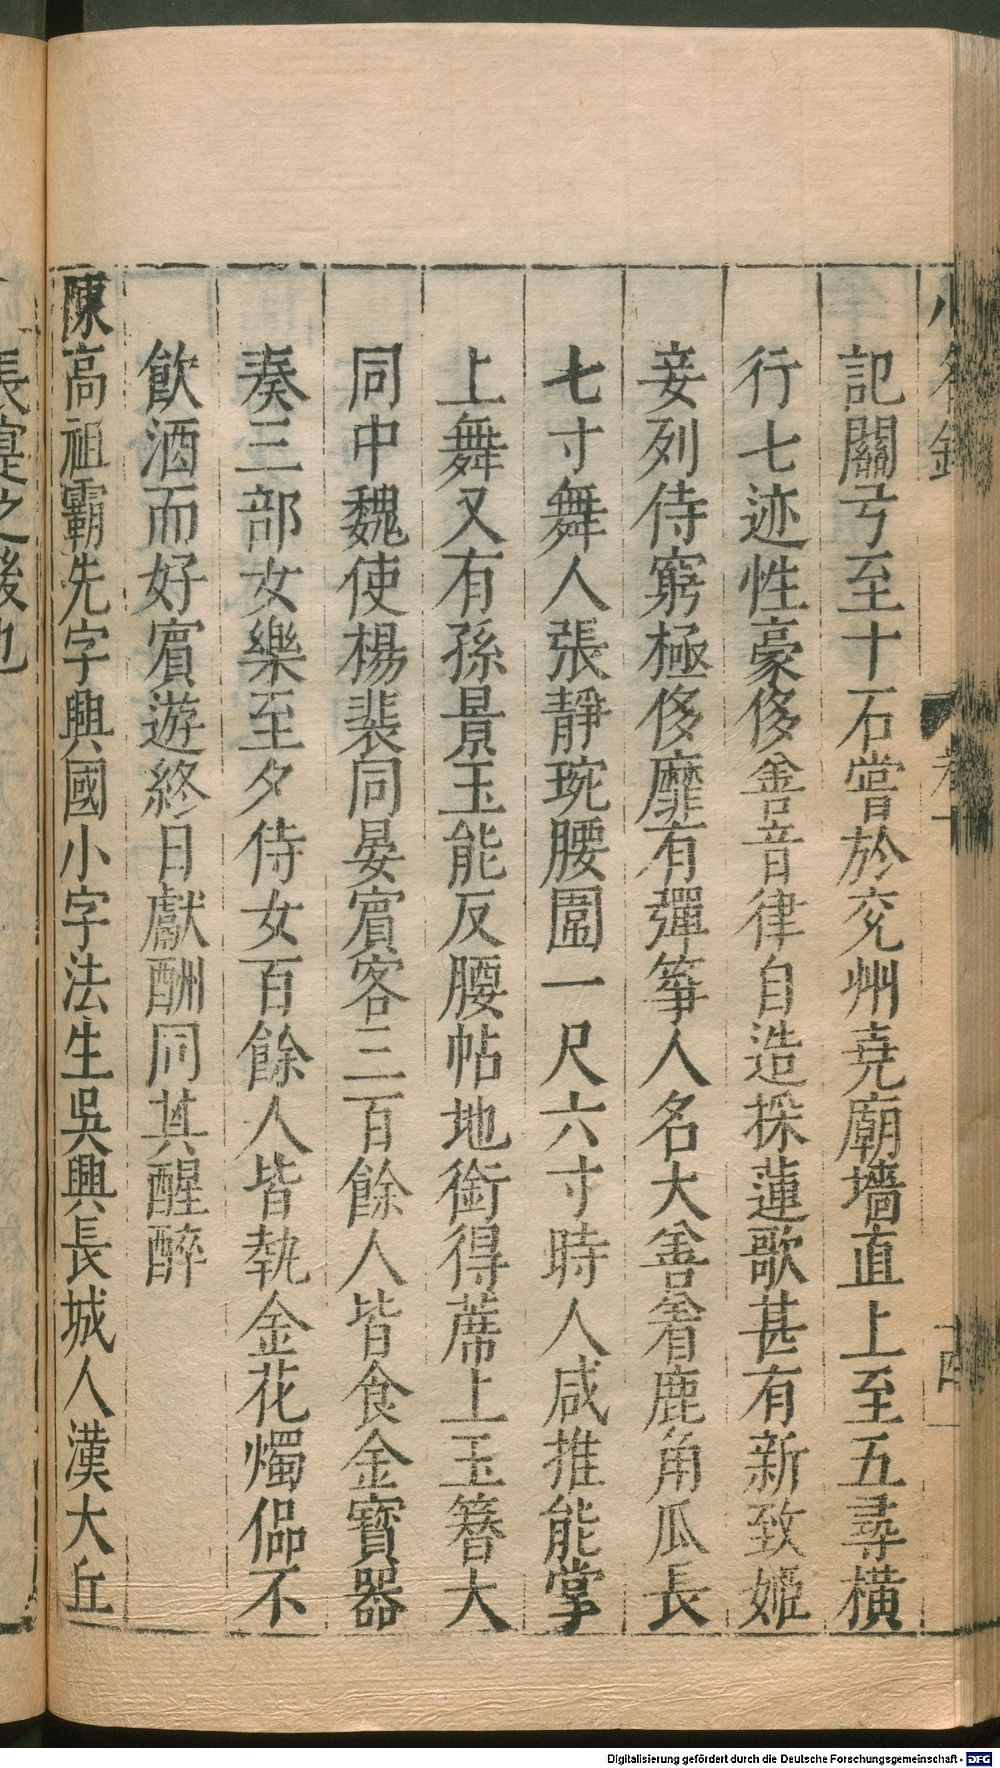 小名錄
卷下
記關弓至十石嘗於兖州堯廟墻直上至五尋橫
行七迹性豪侈善音律自造採蓮歌甚有新致姬
妾列侍窮極侈靡有彈箏人名大善着鹿角瓜長
七寸舞人張靜琬腰圍一尺六寸時人咸推能掌
上舞又有孫景玉能反腰帖地銜得蓆上玉簪大
同中魏使楊裴同宴賓客三百餘人皆食金寶器
奏三部女樂至夕侍女百餘人皆執金花燭偘不
飲酒而好賓遊終日獻酬同其醒醉
陳高祖霸先字興國小字法生吳興長城人漢大丘
長寔之後也
Digitalisierung gefördert durch die Deutsche Forschungsgemeinschaft - DFG